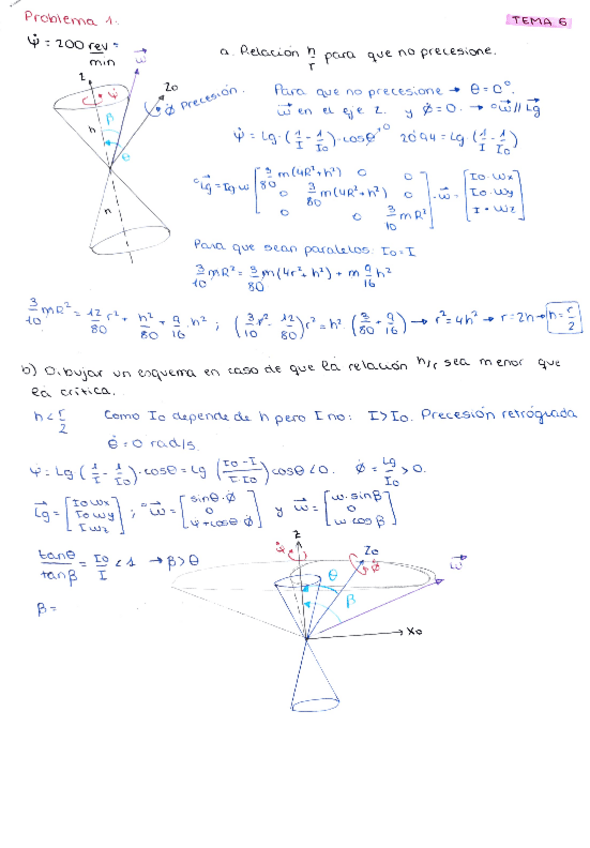 Problema 1.
TEMA 6
ψ̇ = 200 rev/min =
a. Relación h/r para que no precesione.
Para que no precesione → θ = 0°.
w⃗ en el eje z. y ϕ̇ = 0. → °w⃗ // L⃗g
ψ̇ = Lg·(1/I - 1/Io)·cosθ→0 20'94 = Lg (1/I - 1/Io)
z
w⃗
zo
ψ̇
ϕ̇ precesión.
β
h
θ
h
°L⃗g = Ig w [3/80 m(4R²+h²) 0 0; 0 3/80 m(4R²+h²) 0; 0 0 3/10 mR²]·w⃗ = [Io·wx; Io·wy; I·wz]
Para que sean paralelos: Io = I
3/10 mR² = 3/80 m(4r²+h²) + m 9/16 h²
3/10 mR² = 12/80 r² + h²/80 + 9/16·h² ; (3/10 r² - 12/80) r² = h²·(3/80 + 9/16) → r² = 4h² → r = 2h → h = r/2
b) Dibujar un esquema en caso de que la relación h/r sea menor que
la crítica.
h < r/2 Como Io depende de h pero I no: I > Io. Precesión retrógrada
θ̇ = 0 rad/s.
ψ̇ = Lg (1/I - 1/Io)·cosθ = Lg (Io - I/I·Io) cosθ < 0. ϕ̇ = Lg/Io > 0.
L⃗g = [Io wx; Io wy; I wz] ; °w⃗ = [sinθ·ϕ̇; 0; ψ̇ + cosθ ϕ̇] y w⃗ = [w·sinβ; 0; w cosβ]
tanθ/tanβ = Io/I < 1 → β > θ
β =
z
ψ̇
zo
ϕ̇
w⃗
θ
β
Xo